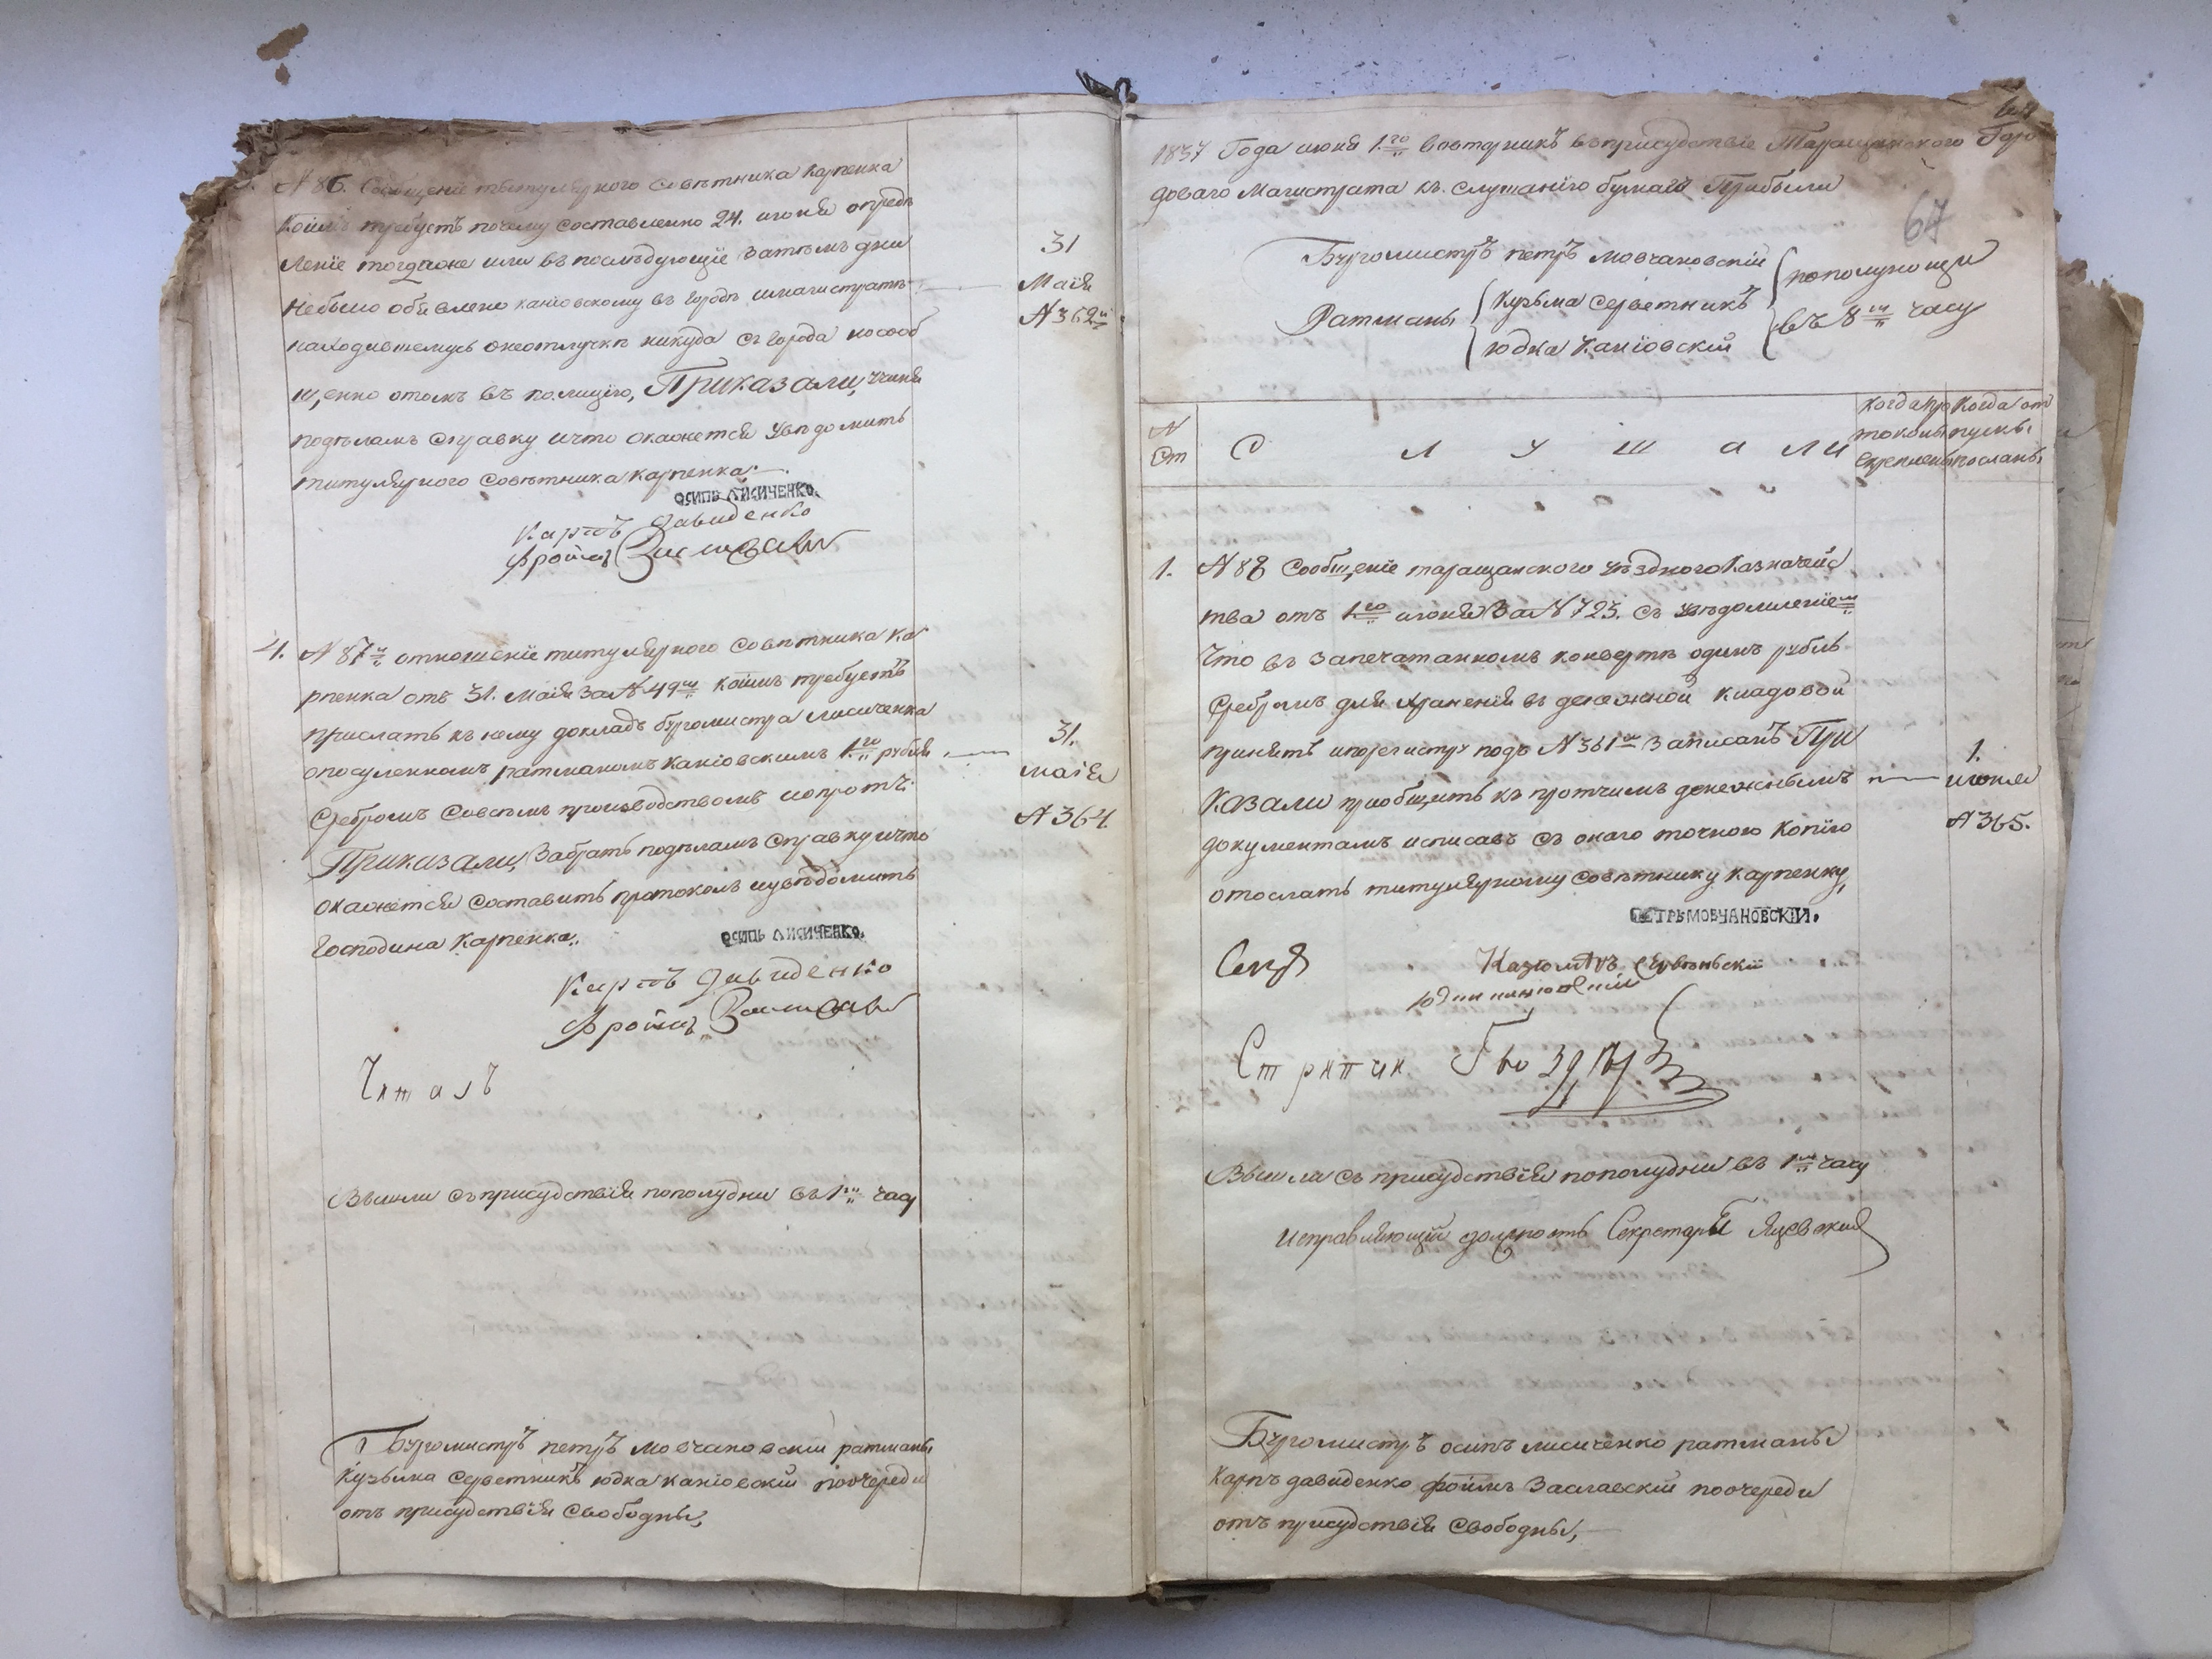 N 86. Сообщеніе титулярного Совѣтника Карпенка
Коимъ требуетъ почему составленно 24. июня опредѣ
леніе тогдаже или въ послѣдующіе затемъ дни
небыло объявлено каніовскому въ Городѣ имагистратѣ
находившемусь онеотлучкѣ никуда съ Города посооб
щенно отомъ въ полицію, Приказали,
поделамъ Справку ичто окажется уведомить
титулярного Совѣтника Карпенка.
ОСИПЪ ЛИСИЧЕНКО.
Карпъ Давиденко
31
Маія
N 362й
4. N 87й отношеніе титулярного Совѣтника Ка
рпенка отъ 31. Маія за N 49мъ коимъ требуетъ
прислать къ нему докладъ бургомистра лисиченка
опосуленномъ ратманомъ каніовскимъ 1го рубля
Сребромъ Совсемъ производствомъ ипротч:
Приказали, Забрать поделамъ Справку ичто
окажется составить протоколъ иуведомить
Господина Карпенка.
ОСИПЪ ЛИСИЧЕНКО.
Карпъ Давиденко
31.
маія
N 364.
Читалъ
Вышли съ присудствія пополудни въ 1мъ часу
Бургомистръ петръ мовчановскій ратманы
Кузьма Серветникъ юдка каніовскій поочереди
отъ присудствія Свободны,
1837 Года июня 1го вовторникъ въприсудствіе Таращанского Горо
доваго Магистрата къ Слушанію бумагъ Прибыли
67
Бургомистръ петръ мовчановскій
Ратманы Кузьма Серветникъ
юдка Каніовскій
пополунощи
въ 8мъ часу
N
Ст
С л у ш а ли
Когда про
токолы
скреплены
Когда от
пуски
посланы
1. N 88 Сообщеніе таращанского уѣздного Казначейс
тва отъ 1го июня за N 723. съ уведомленіемъ
Что въ запечатанномъ конверте одинъ рубль
Сребромъ для храненія въ денежной кладовой
принятъ ипорегистру подъ N 361мъ Записанъ При
Казали приобщить къ протчимъ денежнымъ
документамъ исписавъ съ онаго точною копію
отослать титулярному Совѣтнику Карпенку,
1.
июня
N 365.
ПЕТРЪ МОВЧАНОВСКІЙ.
Стряпчи
Вышли съ присудствія пополудни въ 1мъ часу
Исправляющій должность Секретаря
Бургомистръ осипъ лисиченко ратманы
Карпъ давиденко фроимъ Заславскій поочереди
отъ присудствія Свободны,